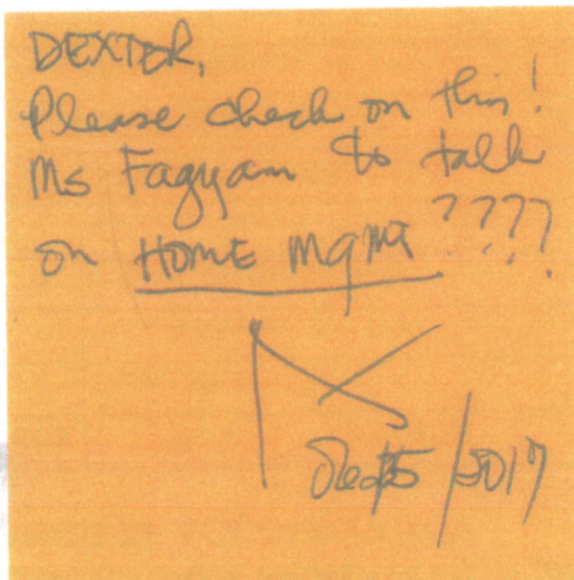 DEXTER,
Please check on this!
Ms Fagyam to talk
on HOME MGMT ????
/2017